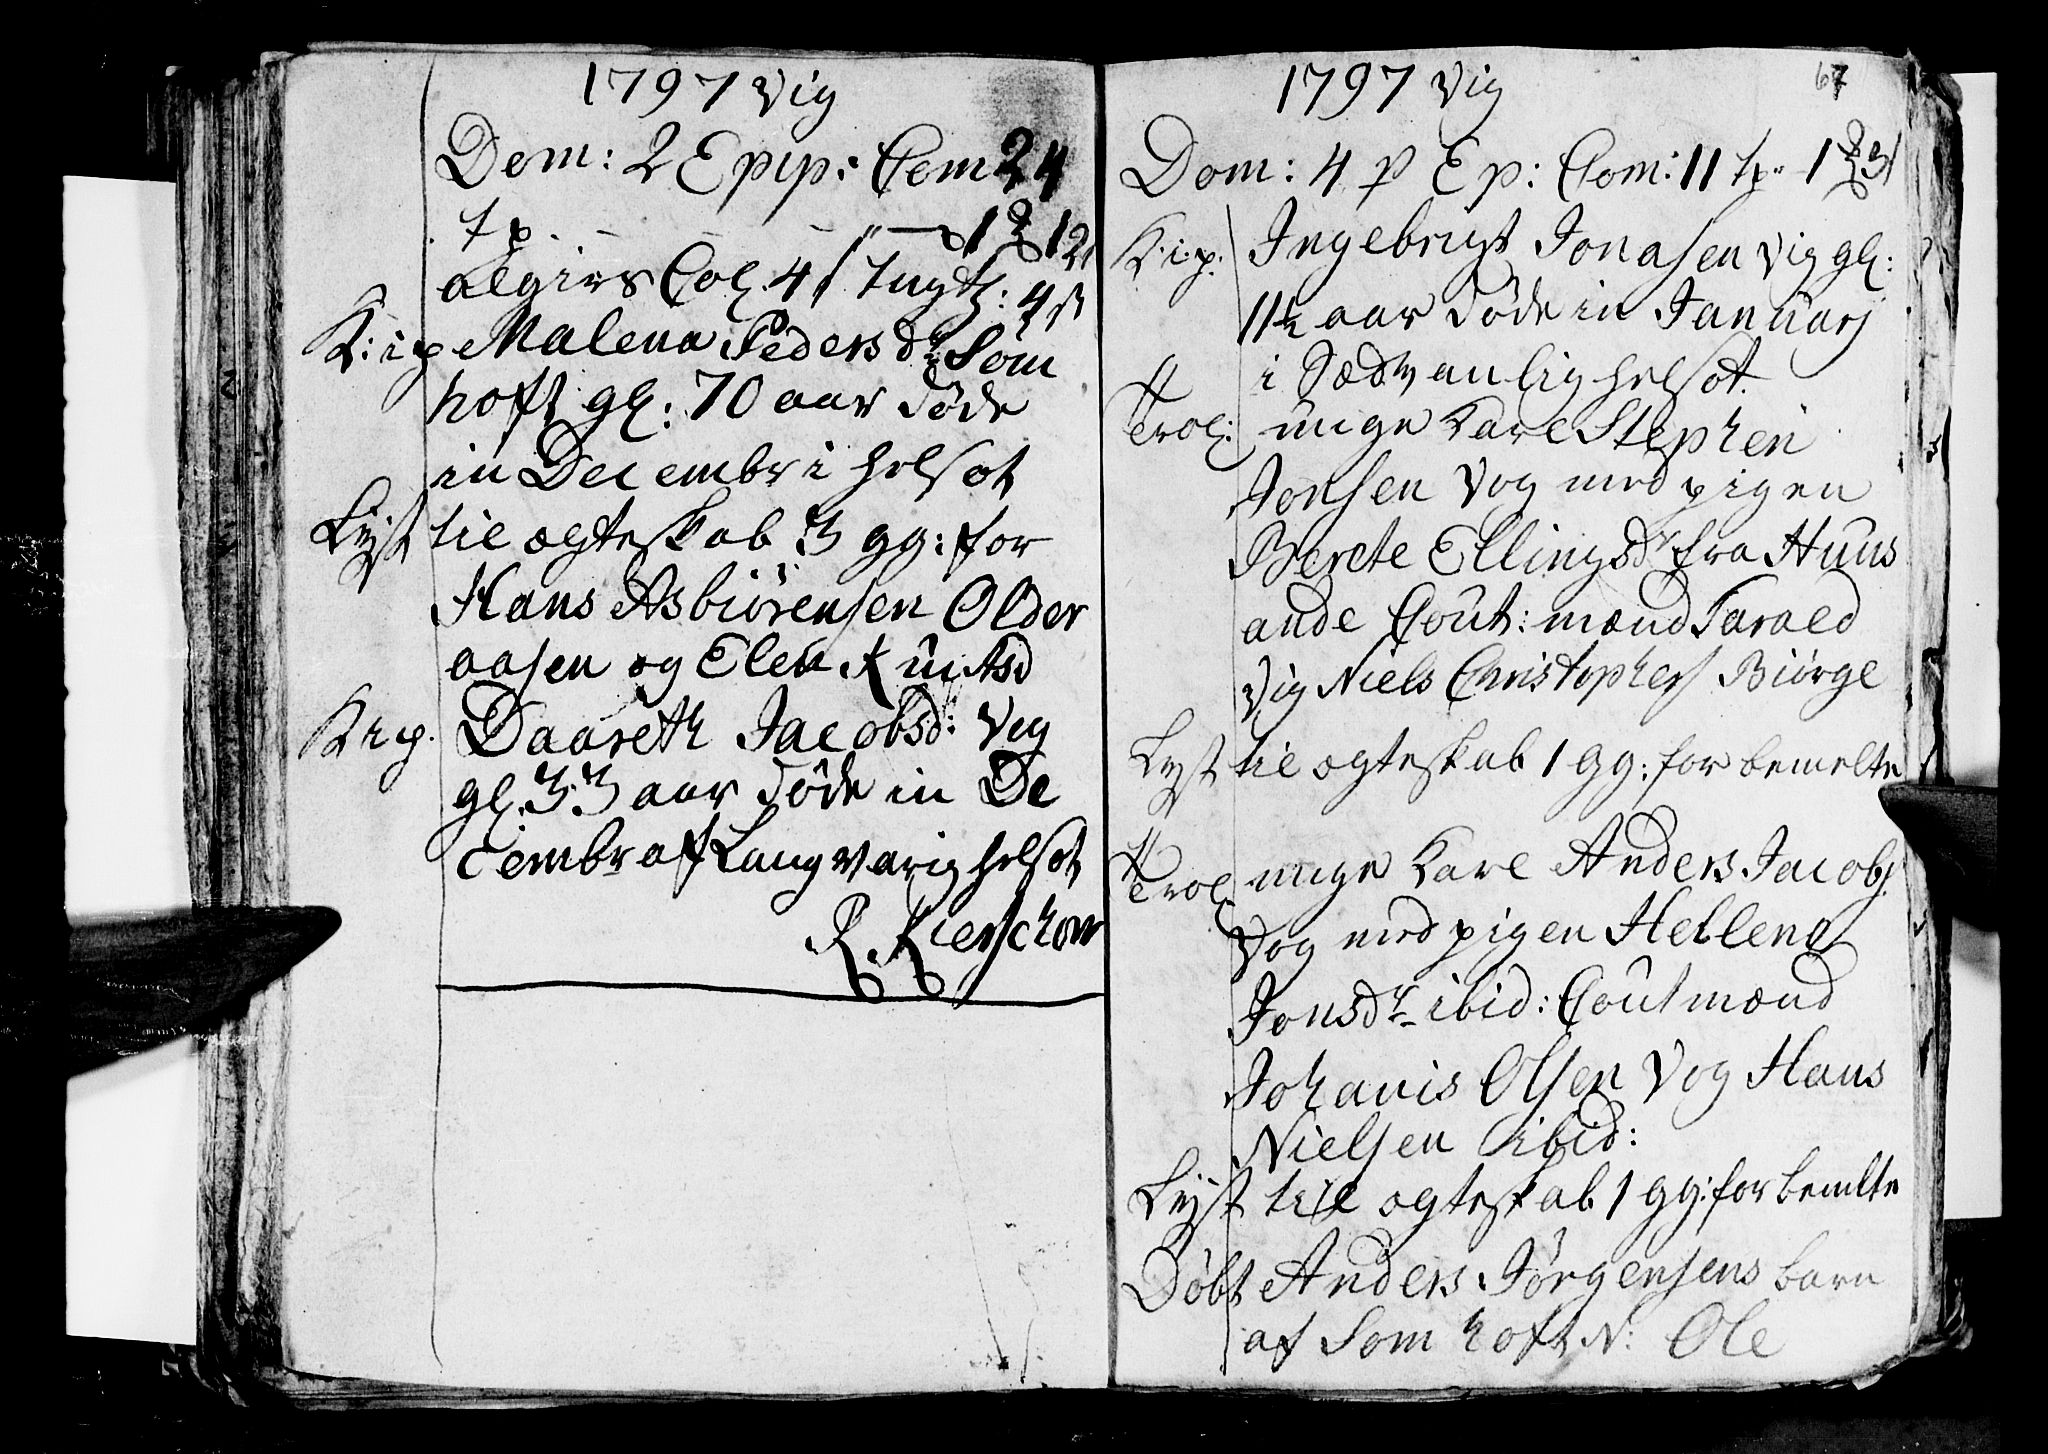 1797 Vig
Dom: 2 Epip: Com 24
tp. — — " — 1
algirs Col. 4 s Tugth: 4 s
K: i p Malena Pedersdr Som
hoft gl: 70 aar døde
in Decembr i helsot
Lyst til ægteskab 3 gg: for
Hans Asbiörensen Older
aasen og Elen Knutsd
K i p. Daareth Jacobsd: Vig
gl. 33 aar døde in De
cembr af Langvarig helsot
R. Kierschow
1797 Vig
67
Dom: 4 p Ep: Com: 11 tp. 1
K: i p. Ingebrigt Jonasen Vig gl:
11½ aar døde in Januarj
i Sædvanlig helsot.
Trol: unge Karl Stephen
Jonsen Vog med pigen
Berete Ellingsdr fra Huus
ande Cout: mænd Tarald
Vig Niels Christophers Biörge
Lyst til ægteskab 1 gg: for bemelte
Trol. unge Karl Anders Jacobs.
Vog med pigen Hellena
Jonsdr ibid: Cout mænd
Johanis Olsen Vog Hans
Nielsen ibid:
Lyst til ægteskab 1 gg: for bemelte
Döbt Anders Jörgensens barn
af Somhoft N: Ole